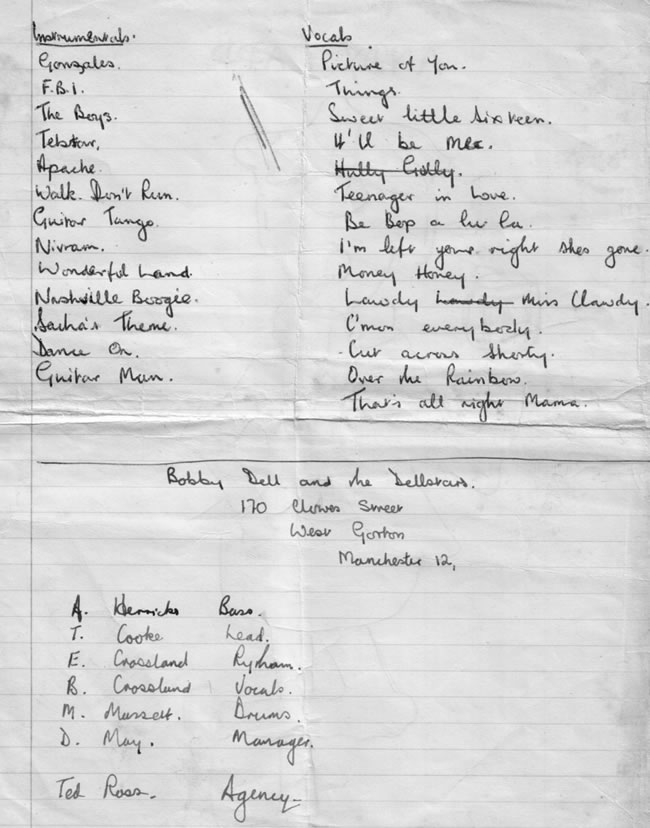 Instrumentals.
Gonzales.
F.B.I.
The Boys.
Telstar.
Apache.
Walk. Don't Run.
Guitar Tango.
Nivram.
Wonderful Land.
Nashville Boogie.
Sacha's Theme.
Dance On.
Guitar Man.
Vocals
Picture of You.
Things.
Sweet little Sixteen.
It'll be Me.
Hully Gully.
Teenager in Love.
Be Bop a lu la.
I'm left your right shes gone.
Money Honey.
Lawdy Lawdy Miss Clawdy.
C'mon everybody.
Cut across Shorty.
Over the Rainbow.
That's all right Mama.
Bobby Dell and the Dellstars.
170 Clowes Street
West Gorton
Manchester 12,
A. Herricks Bass.
T. Cooke Lead.
E. Crossland Rytham.
B. Crossland Vocals.
M. Drums.
D. May. Manager.
Ted Ross. Agency